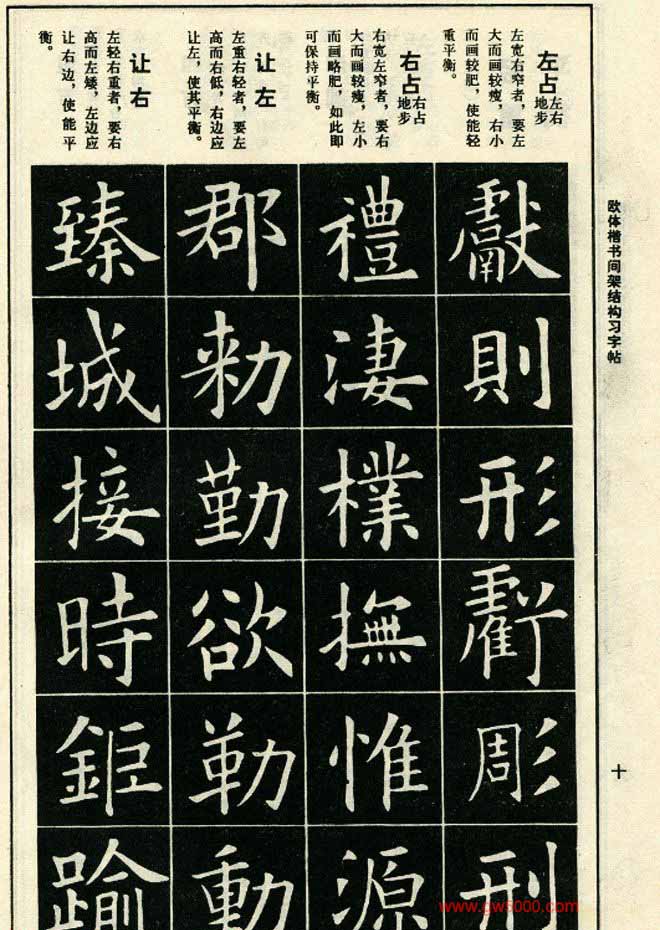 欧体楷书间架结构习字帖
十
左占
左右
地步
左宽右窄者，要左
大而画较瘦，右小
而画较肥，使能轻
重平衡。
獻則形虧彫刑
右占
右占
地步
右宽左窄者，要右
大而画较瘦，左小
而画略肥，如此即
可保持平衡。
禮淒樸撫惟源
让左
左重右轻者，要左
高而右低，右边应
让左，使其平衡。
郡勑勤欲勒動
让右
左轻右重者，要右
高而左矮，左边应
让右边，使能平
衡。
臻城接時鉅踰
www.gw5000.com